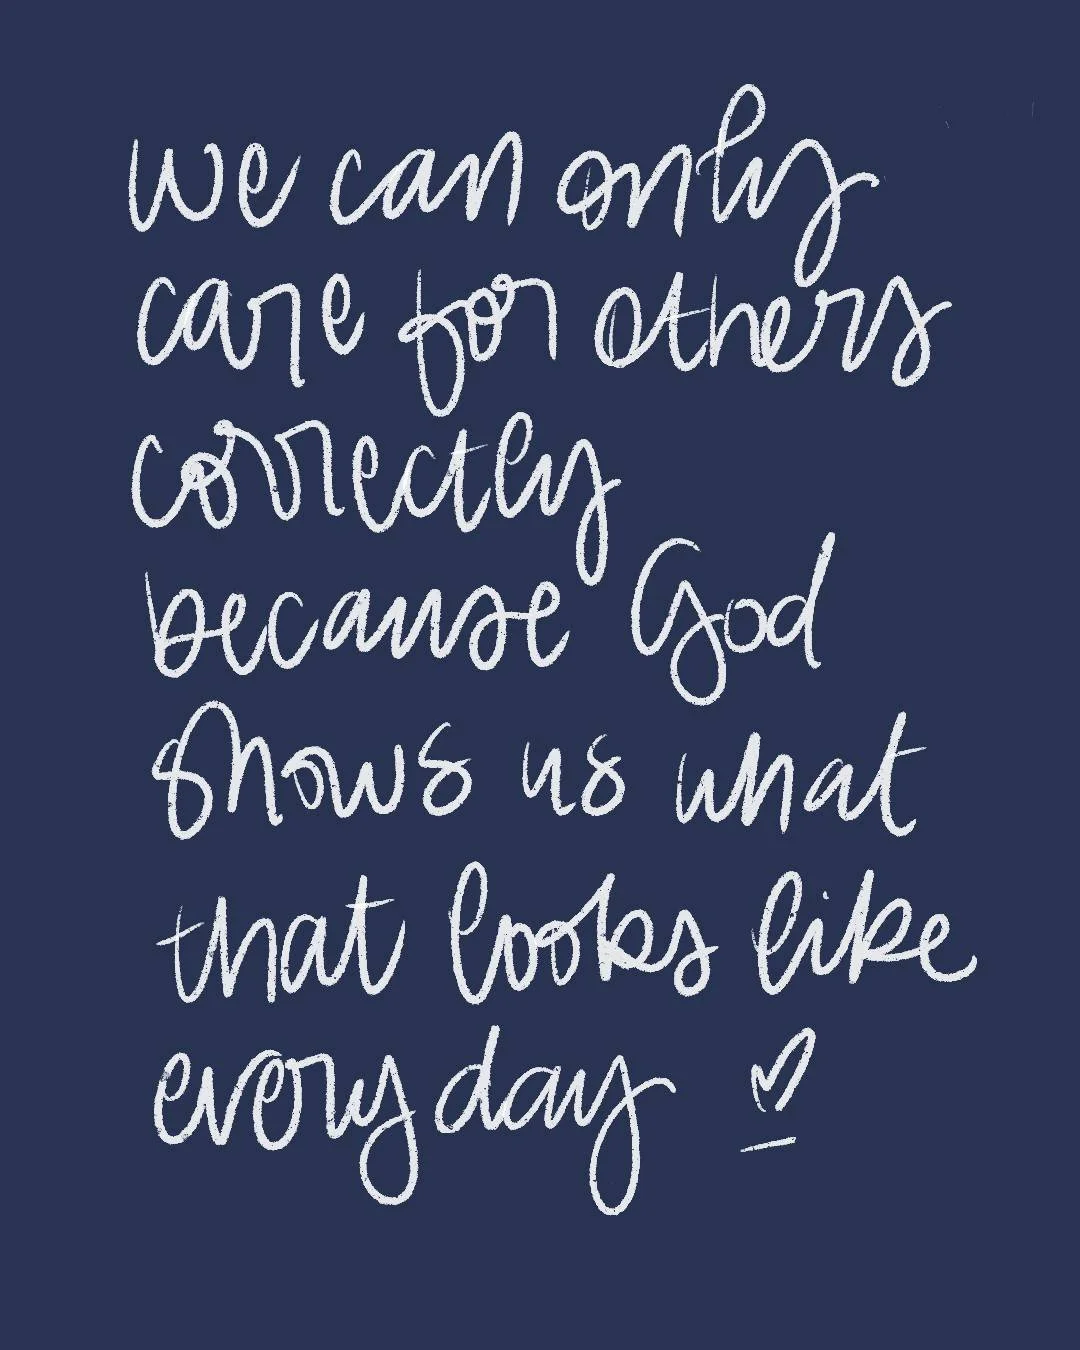 we can only
care for others
correctly
because God
shows us what
that looks like
everyday